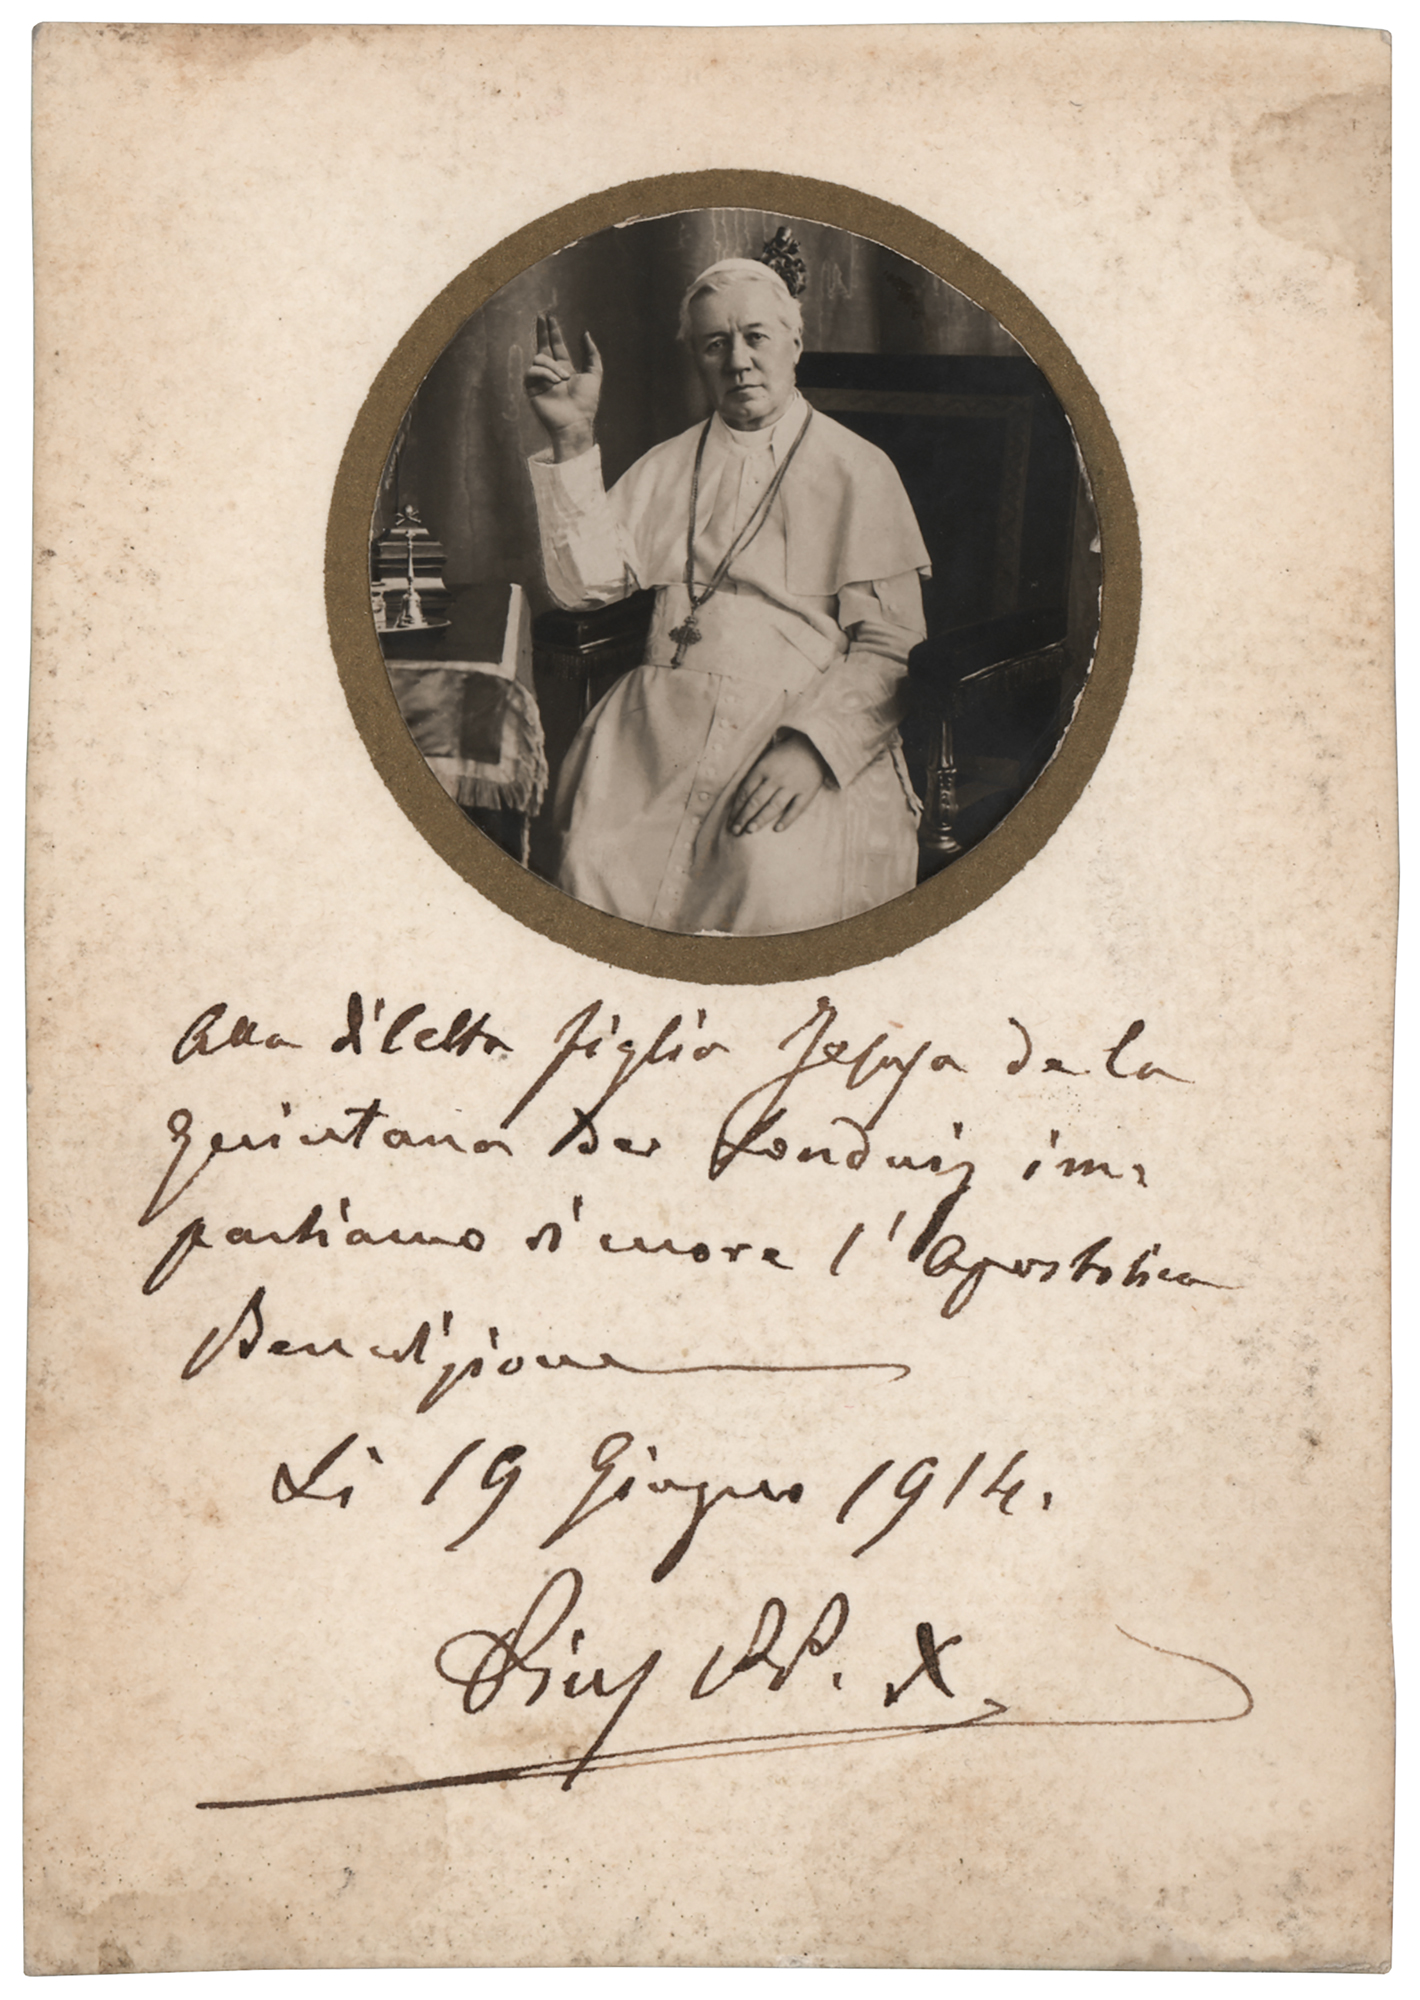 Alla diletta figlia Jesusa de la
Quintana Ber Lenduiz im-
partiamo di cuore l'Apostolica
Benedizione
Li 19 Giugno 1914.
Pius PP. X